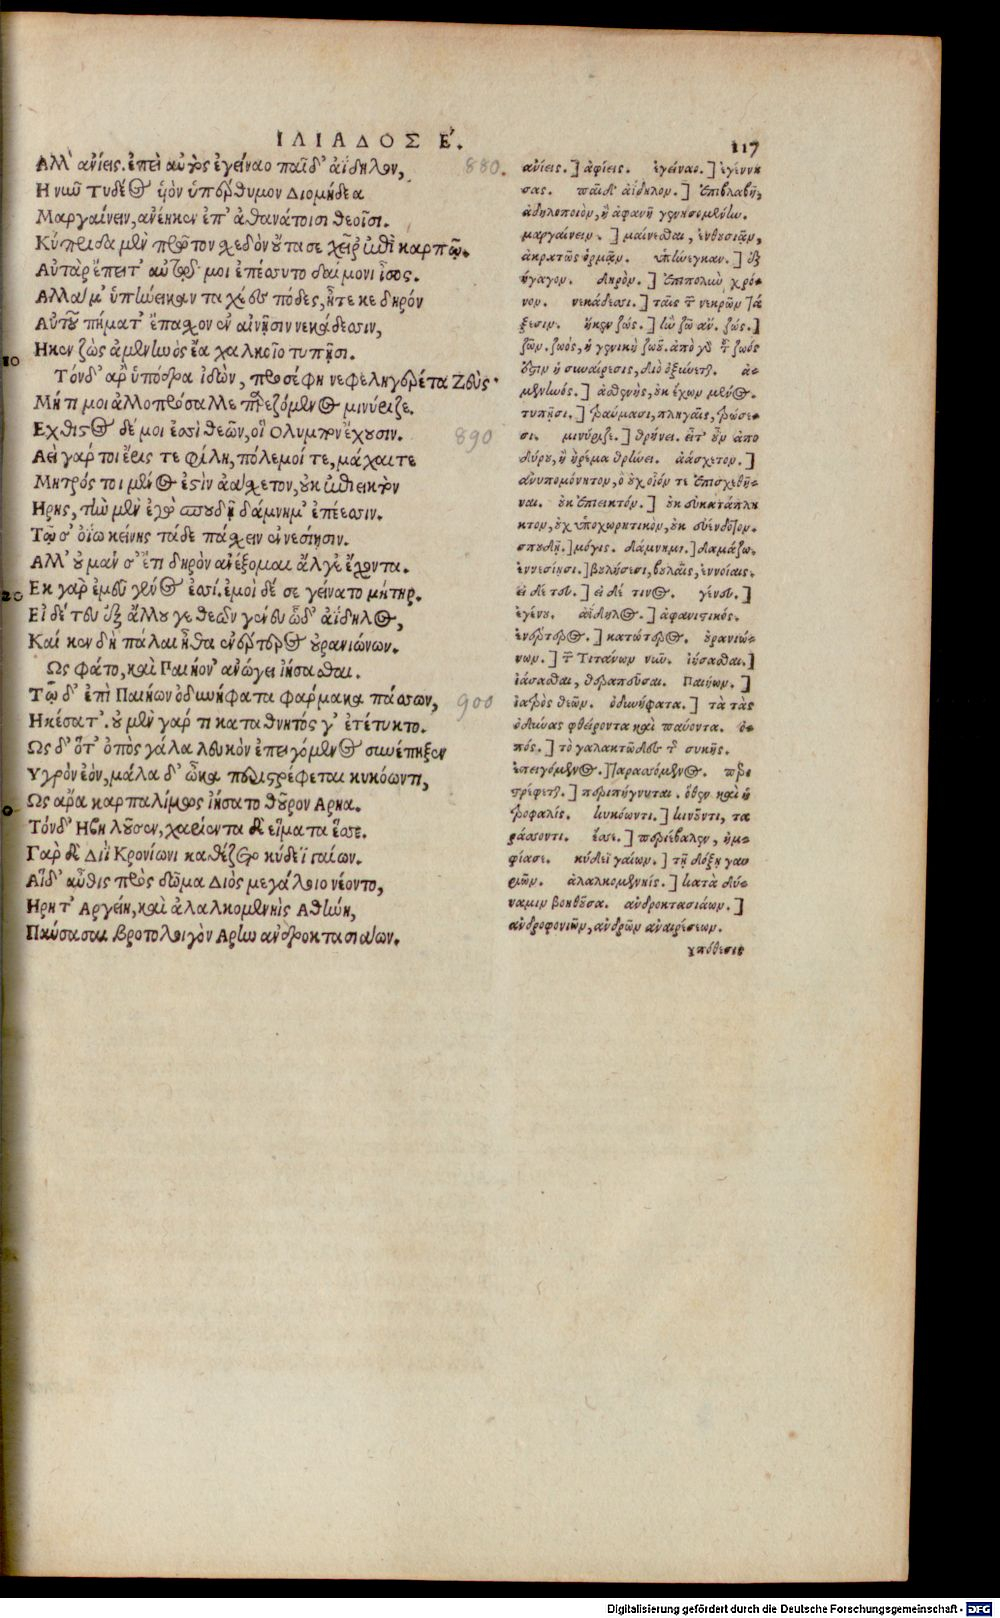 ΙΛΙΑΔΟΣ Ε΄.
117
Αλλ' ἀνίεις. ἐπεὶ αὐτὸς ἐγείναο παῖδ' ἀΐδηλον,
Η νῦν Τυδέος ὑὸν ὑπέρθυμον Διομήδεα
Μαργαίνειν, ἀνέηκεν ἐπ' ἀθανάτοισι θεοῖσι.
Κύπριδα μὲν πρῶτον σχεδὸν οὔτασε χεῖρ' ἐπὶ καρπῷ.
Αὐτὰρ ἔπειτ' αὐτῷ μοι ἐπέσσυτο δαίμονι ἶσος.
Αλλά μ' ὑπήνεικαν ταχέες πόδες, ἦτε κε δηρόν
Αὐτοῦ πήματ' ἔπασχον ἐν αἰνῇσιν νεκάδεσσιν,
10
Η κεν ζὼς ἀμενηνὸς ἔα χαλκοῖο τυπῇσι.
Τόνδ' αῤ ὑπόδρα ἰδὼν, προσέφη νεφεληγερέτα Ζεύς·
Μή τι μοι ἀλλοπρόσαλλε παρεζόμενος μινύριζε.
Εχθιστος δέ μοι ἐσσὶ θεῶν, οἳ Ολυμπον ἔχουσιν. 890
Αεὶ γάρ τοι ἔρις τε φίλη, πόλεμοί τε, μάχαι τε
Μητρός τοι μένος ἐστὶν ἀάσχετον, οὐκ ἐπιεικτὸν
Ηρης, τὴν μὲν ἐγὼ σπουδῇ δάμνημ' ἐπέεσσιν.
Τῷ σ' ὀΐω κείνης τάδε πάσχειν ἐννεσίῃσιν.
Αλλ' οὐ μάν σ' ἔτι δηρὸν ἀνέξομαι ἄλγε' ἔχοντα.
20
Εκ γὰρ ἐμεῦ γένος ἐσσί. ἐμοὶ δέ σε γείνατο μήτηρ.
Εἰ δέ τευ ἐξ ἄλλου γε θεῶν γένευ ὧδ' ἀΐδηλος,
Καί κεν δὴ πάλαι ἦσθα ἐνέρτερος οὐρανιώνων.
Ως φάτο, καὶ Παιήον' ἀνώγει ἰήσασθαι.
Τῷ δ' ἐπὶ Παιήων ὀδυνήφατα φάρμακα πάσσων, 900
Ηκέσατ'. οὐ μὲν γάρ τι καταθνητός γ' ἐτέτυκτο.
Ως δ' ὅτ' ὀπὸς γάλα λευκὸν ἐπειγόμενος συνέπηξεν
Υγρὸν ἐὸν, μάλα δ' ὦκα περιστρέφεται κυκόωντι,
Ως ἄρα καρπαλίμως ἰήσατο θοῦρον Αρηα.
Τόνδ' Ηβη λοῦσεν, χαρίεντα δὲ εἵματα ἕσσε.
Παρ δὲ Διῒ Κρονίωνι καθέζετο κύδεϊ γαίων.
Αἳδ' αὖθις πρὸς δῶμα Διὸς μεγάλοιο νέοντο,
Ηρη τ' Αργείη, καὶ ἀλαλκομενηὶς Αθήνη,
Παύσασαι βροτολοιγὸν Αρην ἀνδροκτασιάων.
880.
ἀνίεις.] ἀφίεις. ἐγείναο.] ἐγέννη
σας. παῖδ' ἀΐδηλον.] ἐπιβλαβῆ,
ἀδηλοποιὸν, ἢ ἀφανῆ γενησομένην.
μαργαίνειν.] μαίνεσθαι, ἐνθουσιᾷν,
ἀκρατῶς ὁρμᾷν. ὑπήνεγκαν.] ἐξ
ήγαγον. δηρὸν.] ἐπιπολὺ χρό-
νον. νεκάδεσσι.] ταῖς τῶν νεκρῶν τά
ξεσιν. ἤκεν ζώς.] ἢ ζῶ ἄν. ζώς.]
ζῶν. ζωὸς, ἡ γενικὴ ζωοῦ. ἀπὸ γὰρ τοῦ ζωός
ἐστιν ἡ συναίρεσις, διὸ ὀξύνεται. ἀ-
μενηνός.] ἀσθενὴς, οὐκ ἔχων μένος.
τυπῇσι.] τραύμασι, πληγαῖς, τρώσε-
σι. μινύριζε.] θρήνει. εἴτ' οὖν ἀπὸ
λύρου, ἢ ἠρέμα θρήνει. ἀάσχετον.]
ἀνυπομόνητον, ὃ οὐχ οἷόν τε ἐπισχεθῆ-
ναι. οὐκ ἐπιεικτόν.] οὐκ εὐκατάπλη
κτον, οὐχ ὑποχωρητικὸν, οὐκ εὐένδοτον.
σπουδῇ.] μόγις. δάμνημι.] δαμάζω.
ἐννεσίῃσι.] βουλήσεσι, βουλαῖς, ἐννοίαις.
εἰ δέ τευ.] εἰ δέ τινος. γένευ.]
ἐγένου. ἀΐδηλος.] ἀφανιστικός.
ἐνέρτερος.] κατώτερος. οὐρανιώ-
νων.] τῶν Τιτάνων νῦν. ἰήσασθαι.]
ἰάσασθαι, θεραπεῦσαι. Παιήων.]
ἰατρὸς θεῶν. ὀδυνήφατα.] τὰ τὰς
ὀδύνας φθείροντα καὶ παύοντα. ὀ-
πός.] τὸ γαλακτῶδες τῆς συκῆς.
ἐπειγόμενος.] Παρασσόμενος. περι
στρέφεται.] περιπήγνυται. ὅθεν καὶ ἡ
τροφαλίς. κυκόωντι.] κινοῦντι, τα
ράσσοντι. ἕσσε.] περιέβαλεν, ἠμ-
φίασε. κύδεϊ γαίων.] τῇ δόξῃ γαυ
ριῶν. ἀλαλκομενηΐς.] κατὰ δύ-
ναμιν βοηθοῦσα. ἀνδροκτασιάων.]
ἀνδροφονιῶν, ἀνδρῶν ἀναιρέσεων.
ὑπόθεσις
Digitalisierung gefördert durch die Deutsche Forschungsgemeinschaft - DFG